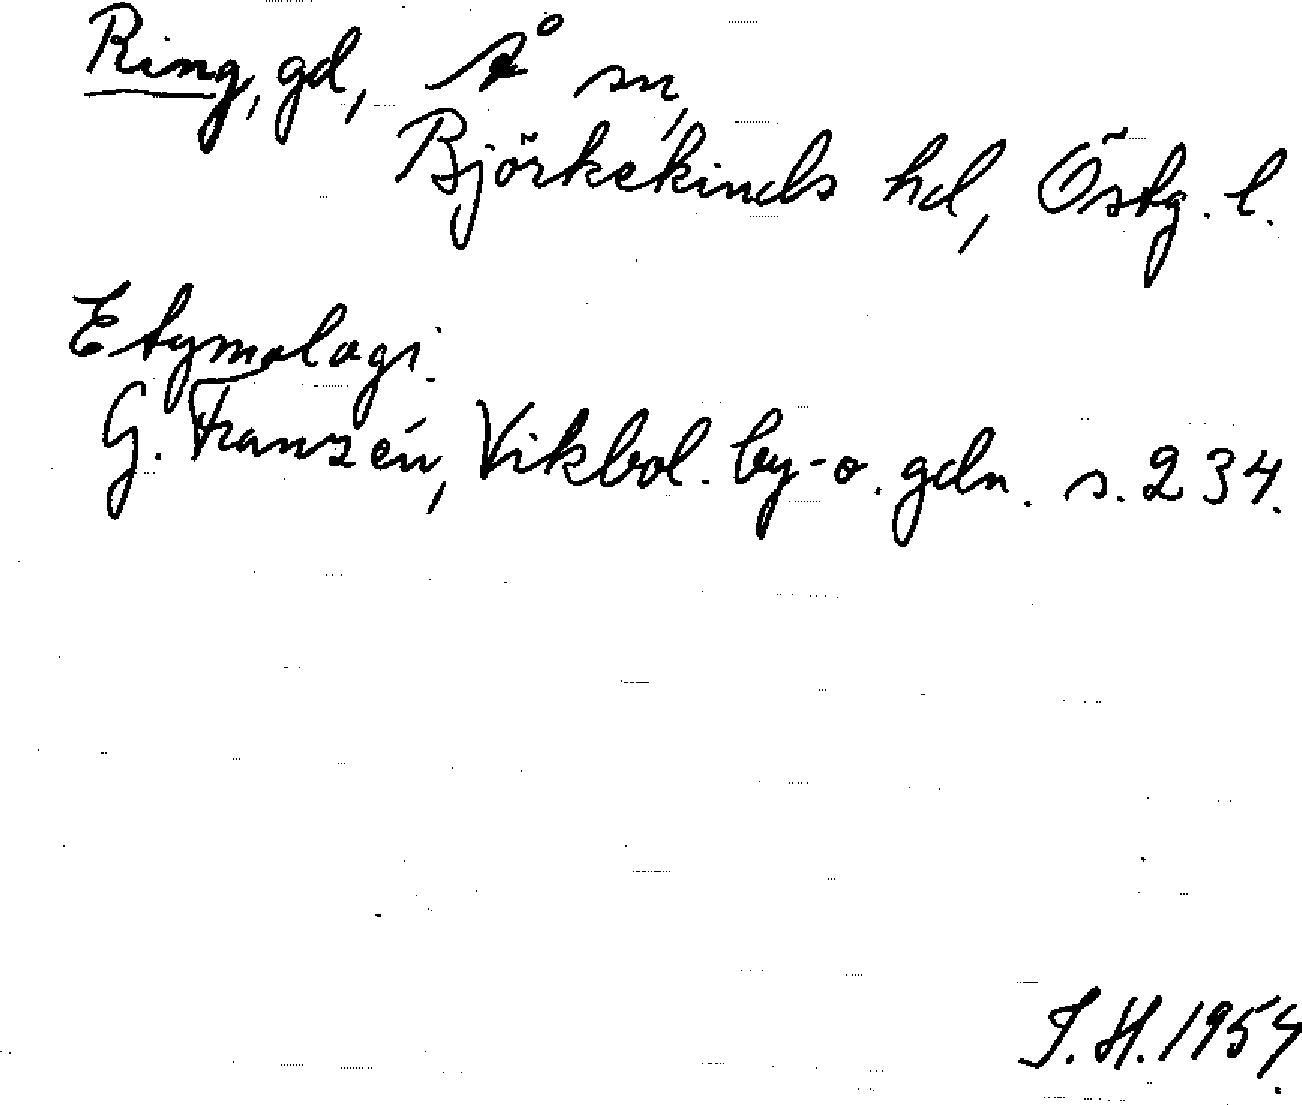 Ring, gd, Å sn,
Björkekinds hd, Östg. l.
Etymologi.
G. Franzén, Vikbol. by- o. gdn. s. 234.
I. H. 1954.